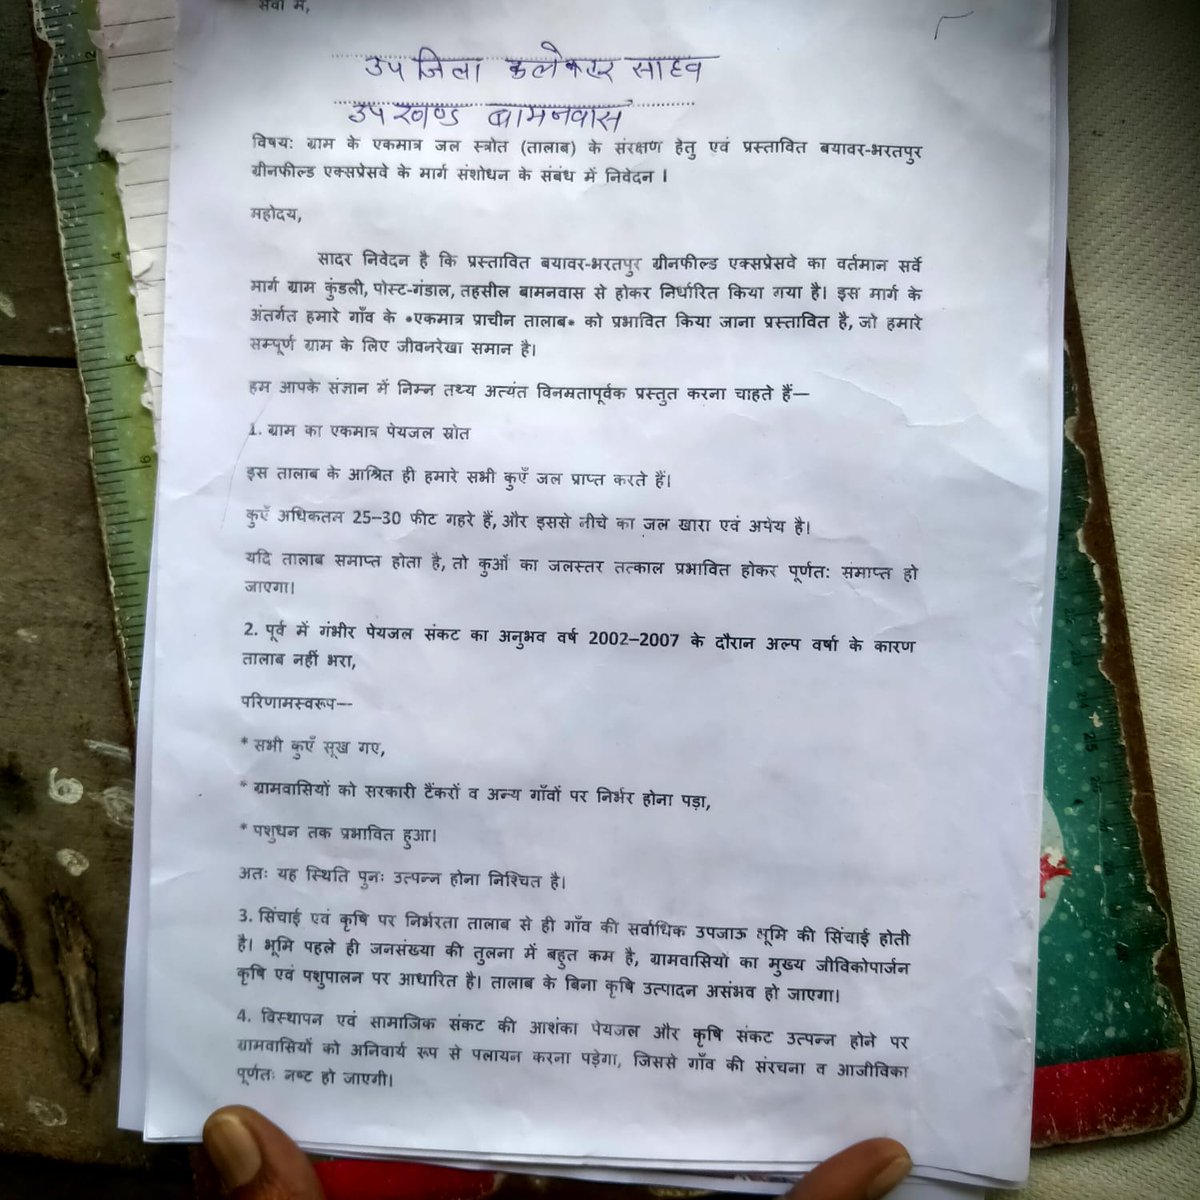 सेवा में,
उप जिला कलेक्टर साहब
उपखण्ड बामनवास
विषय: ग्राम के एकमात्र जल स्त्रोत (तालाब) के संरक्षण हेतु एवं प्रस्तावित बयावर-भरतपुर
ग्रीनफील्ड एक्सप्रेसवे के मार्ग संशोधन के संबंध में निवेदन ।
महोदय,
सादर निवेदन है कि प्रस्तावित बयावर-भरतपुर ग्रीनफील्ड एक्सप्रेसवे का वर्तमान सर्वे
मार्ग ग्राम कुंडली, पोस्ट-गंडाल, तहसील बामनवास से होकर निर्धारित किया गया है। इस मार्ग के
अंतर्गत हमारे गाँव के *एकमात्र प्राचीन तालाब* को प्रभावित किया जाना प्रस्तावित है, जो हमारे
सम्पूर्ण ग्राम के लिए जीवनरेखा समान है।
हम आपके संज्ञान में निम्न तथ्य अत्यंत विनम्रतापूर्वक प्रस्तुत करना चाहते हैं—
1. ग्राम का एकमात्र पेयजल स्रोत
इस तालाब के आश्रित ही हमारे सभी कुएँ जल प्राप्त करते हैं।
कुएँ अधिकतम 25–30 फीट गहरे हैं, और इससे नीचे का जल खारा एवं अपेय है।
यदि तालाब समाप्त होता है, तो कुओं का जलस्तर तत्काल प्रभावित होकर पूर्णत: समाप्त हो
जाएगा।
2. पूर्व में गंभीर पेयजल संकट का अनुभव वर्ष 2002–2007 के दौरान अल्प वर्षा के कारण
तालाब नहीं भरा,
परिणामस्वरूप—
* सभी कुएँ सूख गए,
* ग्रामवासियों को सरकारी टैंकरों व अन्य गाँवों पर निर्भर होना पड़ा,
* पशुधन तक प्रभावित हुआ।
अतः यह स्थिति पुनः उत्पन्न होना निश्चित है।
3. सिंचाई एवं कृषि पर निर्भरता तालाब से ही गाँव की सर्वाधिक उपजाऊ भूमि की सिंचाई होती
है। भूमि पहले ही जनसंख्या की तुलना में बहुत कम है, ग्रामवासियों का मुख्य जीविकोपार्जन
कृषि एवं पशुपालन पर आधारित है। तालाब के बिना कृषि उत्पादन असंभव हो जाएगा।
4. विस्थापन एवं सामाजिक संकट की आशंका पेयजल और कृषि संकट उत्पन्न होने पर
ग्रामवासियों को अनिवार्य रूप से पलायन करना पड़ेगा, जिससे गाँव की संरचना व आजीविका
पूर्णतः नष्ट हो जाएगी।